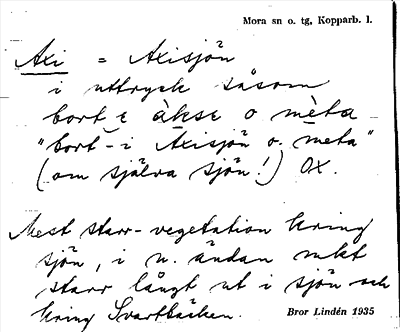 Mora sn o. tg, Kopparb. l.
Axi = Axisjön
i uttryck såsom
bort ɛ àkse o mèta
"bort-i Axisjön o. meta"
(om själva sjön!) OX.
Mest starr-vegetation kring
sjön, i n. ändan mkt
starr långt ut i sjön och
kring Svartbäcken.
Bror Lindén 1935